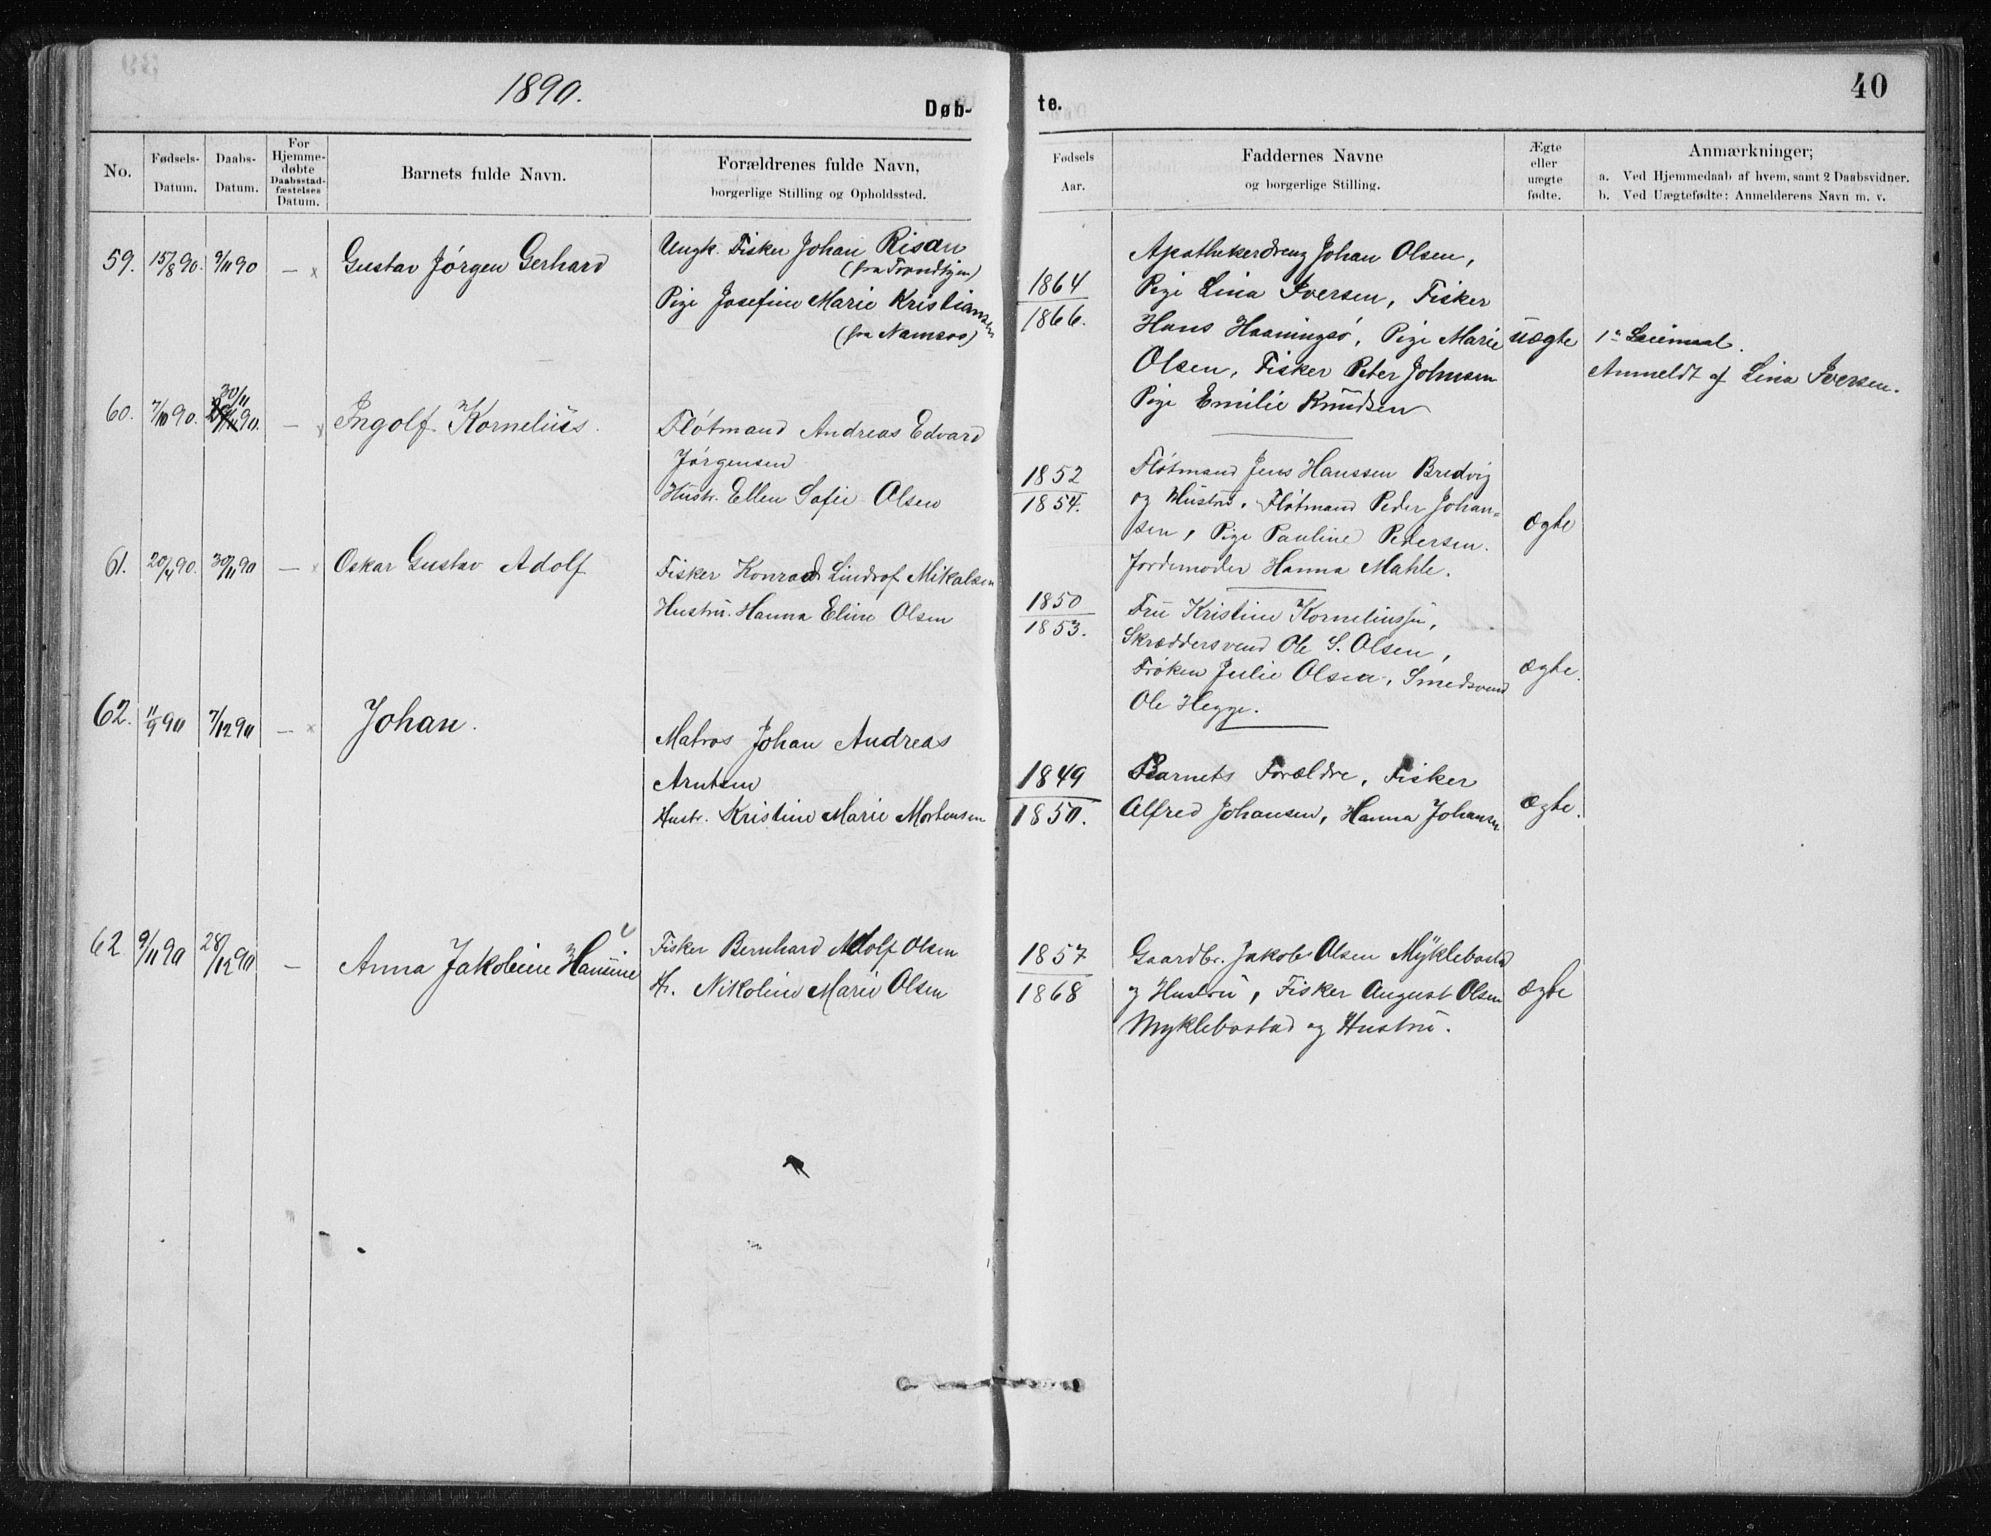 1890.
40
Døb-
te.
No.
Fødsels-
Datum.
Daabs-
Datum.
For
Hjemme-
døbte
Daabsstad-
fæstelses
Datum.
Barnets fulde Navn.
Forældrenes fulde Navn,
borgerlige Stilling og Opholdssted.
Fødsels
Aar.
Faddernes Navne
og borgerlige Stilling.
Ægte
eller
uægte
fødte.
Anmærkninger;
a. Ved Hjemmedaab af hvem, samt 2 Daabsvidner.
b. Ved Uægtefødte: Anmelderens Navn m. v.
59. 15/8 90. 9/11 90 — x Gustav Jørgen Gerhard
Ungk. Fisker Johan Risan
(fra Trondhjem)
Pige Josefine Marie Kristiansen
(fra Namsos)
1864
1866.
Apothekerdreng Johan Olsen,
Pige Lina Iversen, Fisker
Hans Haaningsø, Pige Marie
Olsen, Fisker Peter Johnsen
Pige Emilie Knudsen
uægte
1ste Leiermaal.
Anmeldt af Lina Iversen.
60. 7/10 90. 30/11 90. — x Ingolf Kornelius.
Fløtmand Andreas Edvard
Jørgensen
Hustr. Ellen Sofie Olsen
1852
1854.
Fløtmand Jens Hanssen Bredvig
og Hustru, Fløtmand Peder Johan=
sen, Pige Pauline Pedersen.
Jordemoder Hanna Mahle.
ægte
61. 20/4 90. 30/11 90 — x Oskar Gustav Adolf
Fisker Konrad Lindrof Mikalsen
Hustru. Hanna Eline Olsen
1850
1853.
Fru Kristine Korneliussen,
Skræddersvend Ole S. Olsen,
Frøken Julie Olsen, Smedsvend
Ole Hegge.
ægte.
62. 11/9 90 7/12 90 — x Johan.
Matros Johan Andreas
Arntsen
Hustr. Kristine Marie Mortensen
1849
1850.
Barnets Forældre, Fisker
Alfred Johansen, Hanna Johansen
ægte.
62 9/11 90 28/12 90 — Anna Jakobine Hansine
Fisker Bernhard Adolf Olsen
H. Nikoline Marie Olsen
1857
1868
Gaardbr. Jakob Olsen Myklebostad
og Hustru, Fisker August Olsen
Myklebostad og Hustru.
ægte